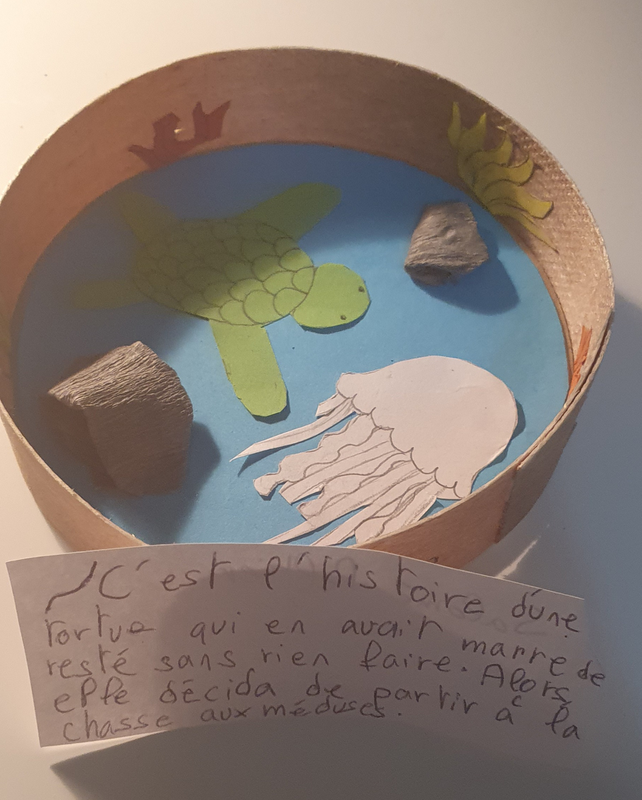 C'est l'histoire d'une
tortue qui en avait marre de
resté sans rien faire. Alors
elle décida de partir à la
chasse aux méduses.